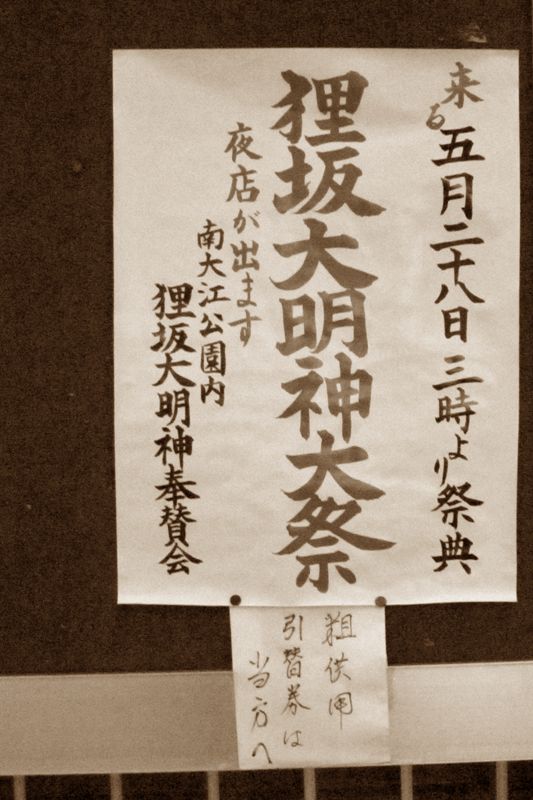 来る五月二十八日三時より祭典
狸坂大明神大祭
夜店が出ます
南大江公園内
狸坂大明神奉賛会
粗供用
引替券は
当方へ